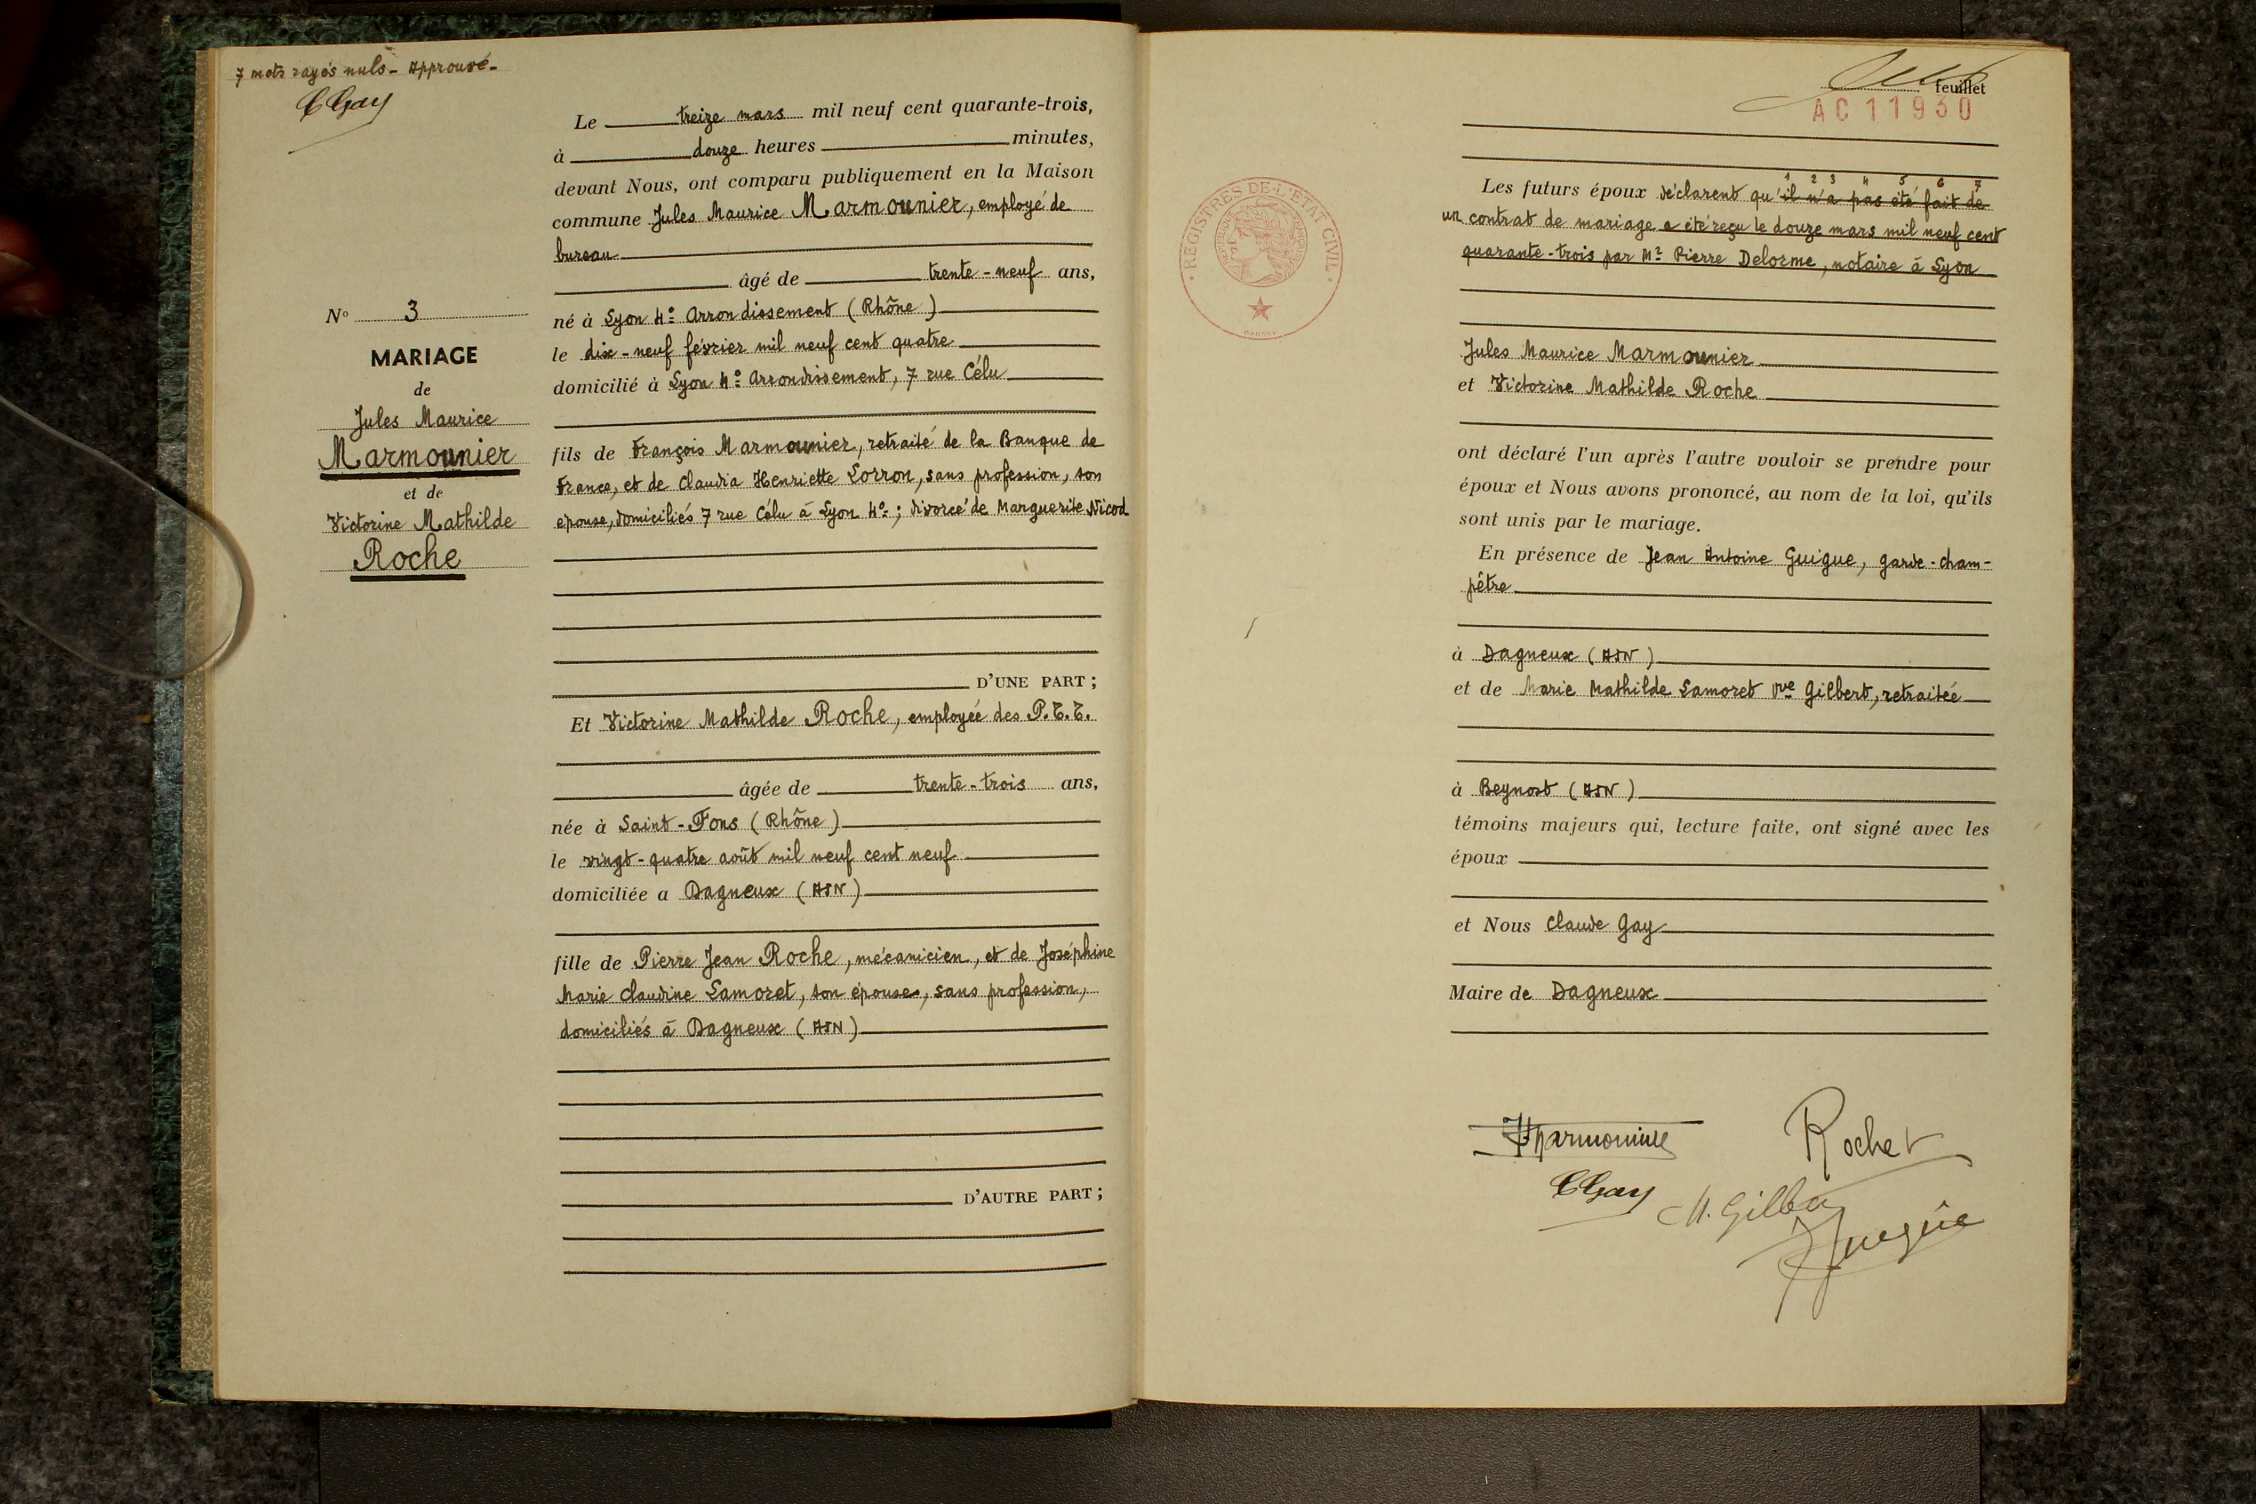 7 mots rayés nuls - Approuvé -
CGay
Le treize mars mil neuf cent quarante-trois,
à douze heures minutes,
devant Nous, ont comparu publiquement en la Maison
commune Jules Maurice Marmounier, employé de
bureau
âgé de trente-neuf ans,
né à Lyon 4e Arrondissement (Rhône)
le dix-neuf février mil neuf cent quatre
domicilié à Lyon 4e Arrondissement, 7 rue Célu
fils de François Marmounier, retraité de la Banque de
France, et de Claudia Henriette Lorron, sans profession, son
épouse, domiciliés 7 rue Célu à Lyon 4e ; divorcé de Marguerite Nicod
D'UNE PART ;
Et Victorine Mathilde Roche, employée des P.T.T.
âgée de trente-trois ans,
née à Saint-Fons (Rhône)
le vingt-quatre août mil neuf cent neuf
domiciliée a Dagneux (AIN)
fille de Pierre Jean Roche, mécanicien, et de Joséphine
Marie Claudine Lamoret, son épouse, sans profession,
domiciliés à Dagneux (AIN)
D'AUTRE PART ;
N° 3
MARIAGE
de
Jules Maurice
Marmounier
et de
Victorine Mathilde
Roche
feuillet
AC 11930
REGISTRES DE L'ETAT CIVIL
Les futurs époux déclarent qu'il n'a pas été fait de
un contrat de mariage a été reçu le douze mars mil neuf cent
quarante-trois par Me Pierre Delorme, notaire à Lyon
1 2 3 4 5 6 7
Jules Maurice Marmounier
et Victorine Mathilde Roche
ont déclaré l'un après l'autre vouloir se prendre pour
époux et Nous avons prononcé, au nom de la loi, qu'ils
sont unis par le mariage.
En présence de Jean Antoine Guigue, garde-cham-
pêtre
à Dagneux (AIN)
et de Marie Mathilde Lamoret Vve Gilbert, retraitée
à Beynost (AIN)
témoins majeurs qui, lecture faite, ont signé avec les
époux
et Nous Claude Gay
Maire de Dagneux
Rochet
CGay